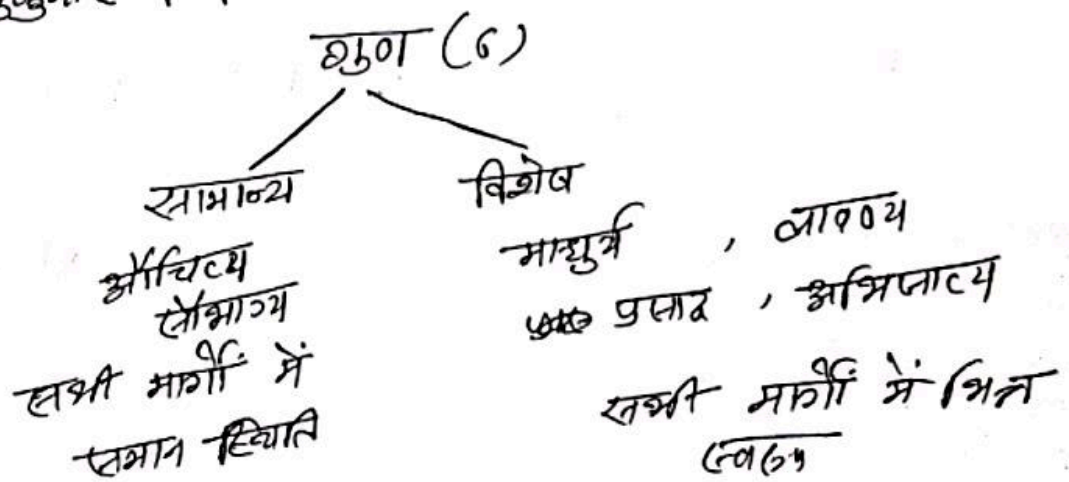 गुण (६)
सामान्य
विशेष
औचित्य
सौभाग्य
सभी मार्गों में
समान स्थिति
माधुर्य , लावण्य
प्रसाद , अभिजात्य
सभी मार्गों में भिन्न
स्वरूप